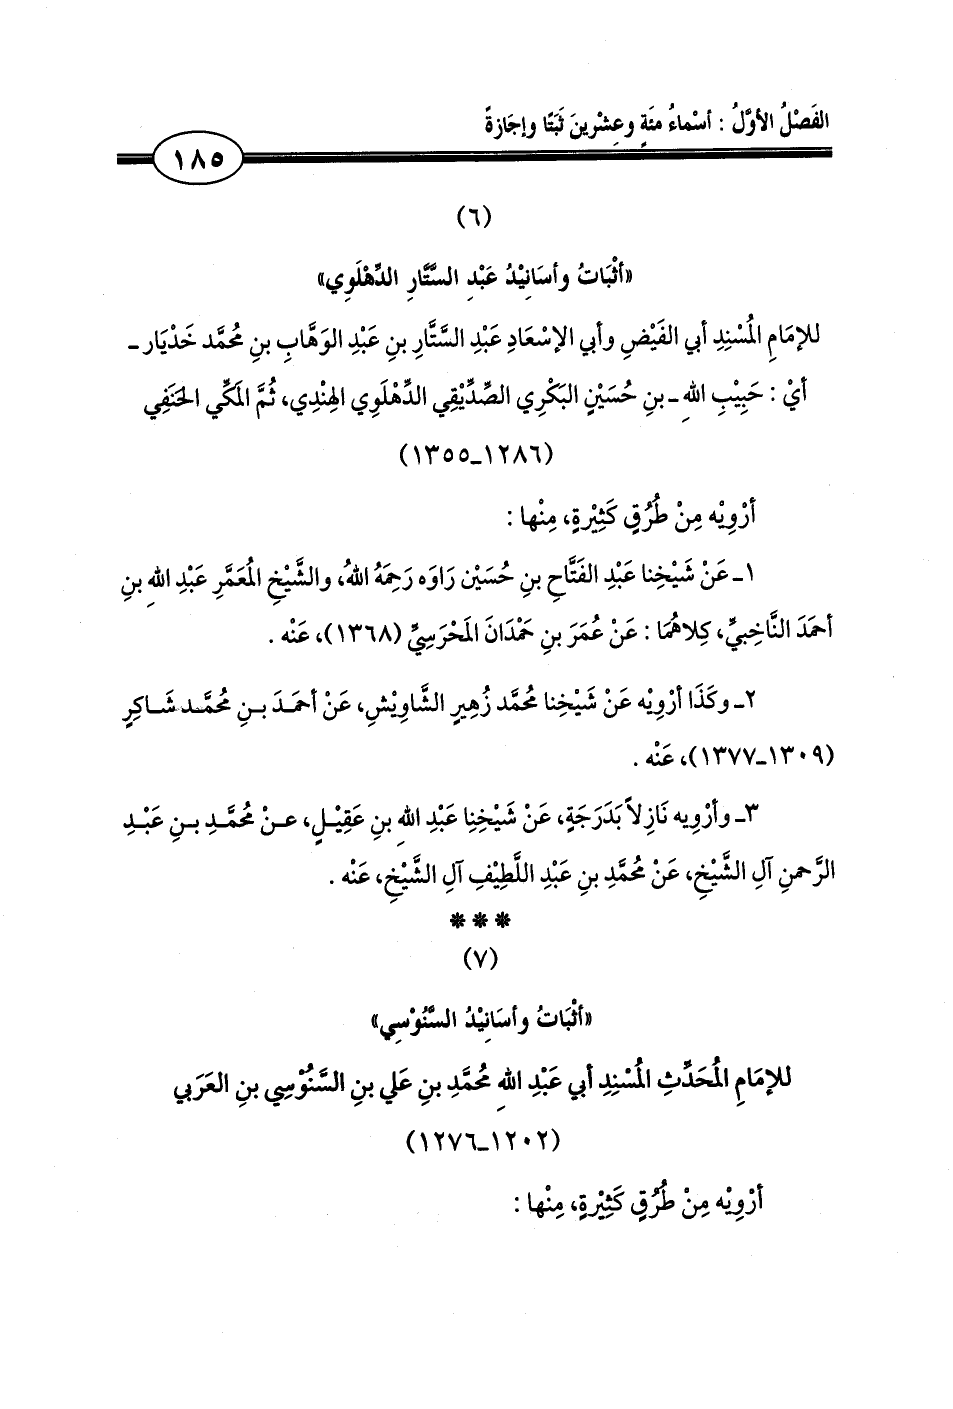 الفَصْلُ الأوَّلُ : أسْماءُ مئَةٍ وعِشْرينَ ثَبَتًا وإجَازةً
١٨٥
(٦)
«أثْبَاتُ وأسَانِيْدُ عَبْدِ السَّتَّارِ الدِّهْلَوِي»
للإمَامِ المُسْنِدِ أبي الفَيْضِ وأبي الإسْعَادِ عَبْدِ السَّتَّارِ بنِ عَبْدِ الوَهَّابِ بنِ مُحَمَّد خَدْيَار ـ
أيْ : حَبِيْبِ اللهِ ـ بنِ حُسَيْنٍ البَكْرِي الصِّدِّيْقِي الدِّهْلَوِي الهِنْدِي، ثُمَّ المَكِّي الحَنَفِي
(١٢٨٦ـ١٣٥٥)
أرْوِيْه مِنْ طُرُقٍ كَثِيْرةٍ، مِنْها :
١ـ عَنْ شَيْخِنا عَبْدِ الفَتَّاحِ بنِ حُسَيْن رَاوَه رَحِمَهُ اللهُ، والشَّيْخِ المُعَمَّرِ عَبْدِ اللهِ بنِ
أحمَدَ النَّاخِبيِّ، كِلاهُمَا : عَنْ عُمَرَ بنِ حَمْدَانَ المَحْرَسِيِّ (١٣٦٨)، عَنْه .
٢ـ وكَذَا أرْوِيْه عَنْ شَيْخِنا مُحمَّد زُهيرٍ الشَّاوِيْشِ، عَنْ أحمَدَ بنِ مُحمَّد شَاكِرٍ
(١٣٠٩ـ١٣٧٧)، عَنْه .
٣ـ وأرْوِيه نَازِلاً بَدَرَجَةٍ، عَنْ شَيْخِنِا عَبْدِ اللهِ بنِ عَقِيْلٍ، عنْ مُحمَّدِ بنِ عَبْدِ
الرَّحمنِ آلِ الشَّيْخِ، عَنْ مُحمَّدِ بنِ عَبْدِ اللَّطِيْفِ آلِ الشَّيْخِ، عَنْه .
***
(٧)
«أثْبَاتُ وأسَانِيْدُ السَّنُوْسِي»
للإمَامِ المُحَدِّثِ المُسْنِدِ أبي عَبْدِ اللهِ مُحَمَّدِ بنِ عَلي بنِ السَّنُوْسِي بنِ العَرَبي
(١٢٠٢ـ١٢٧٦)
أرْوِيْه مِنْ طُرُقٍ كَثِيْرةٍ، مِنْها :